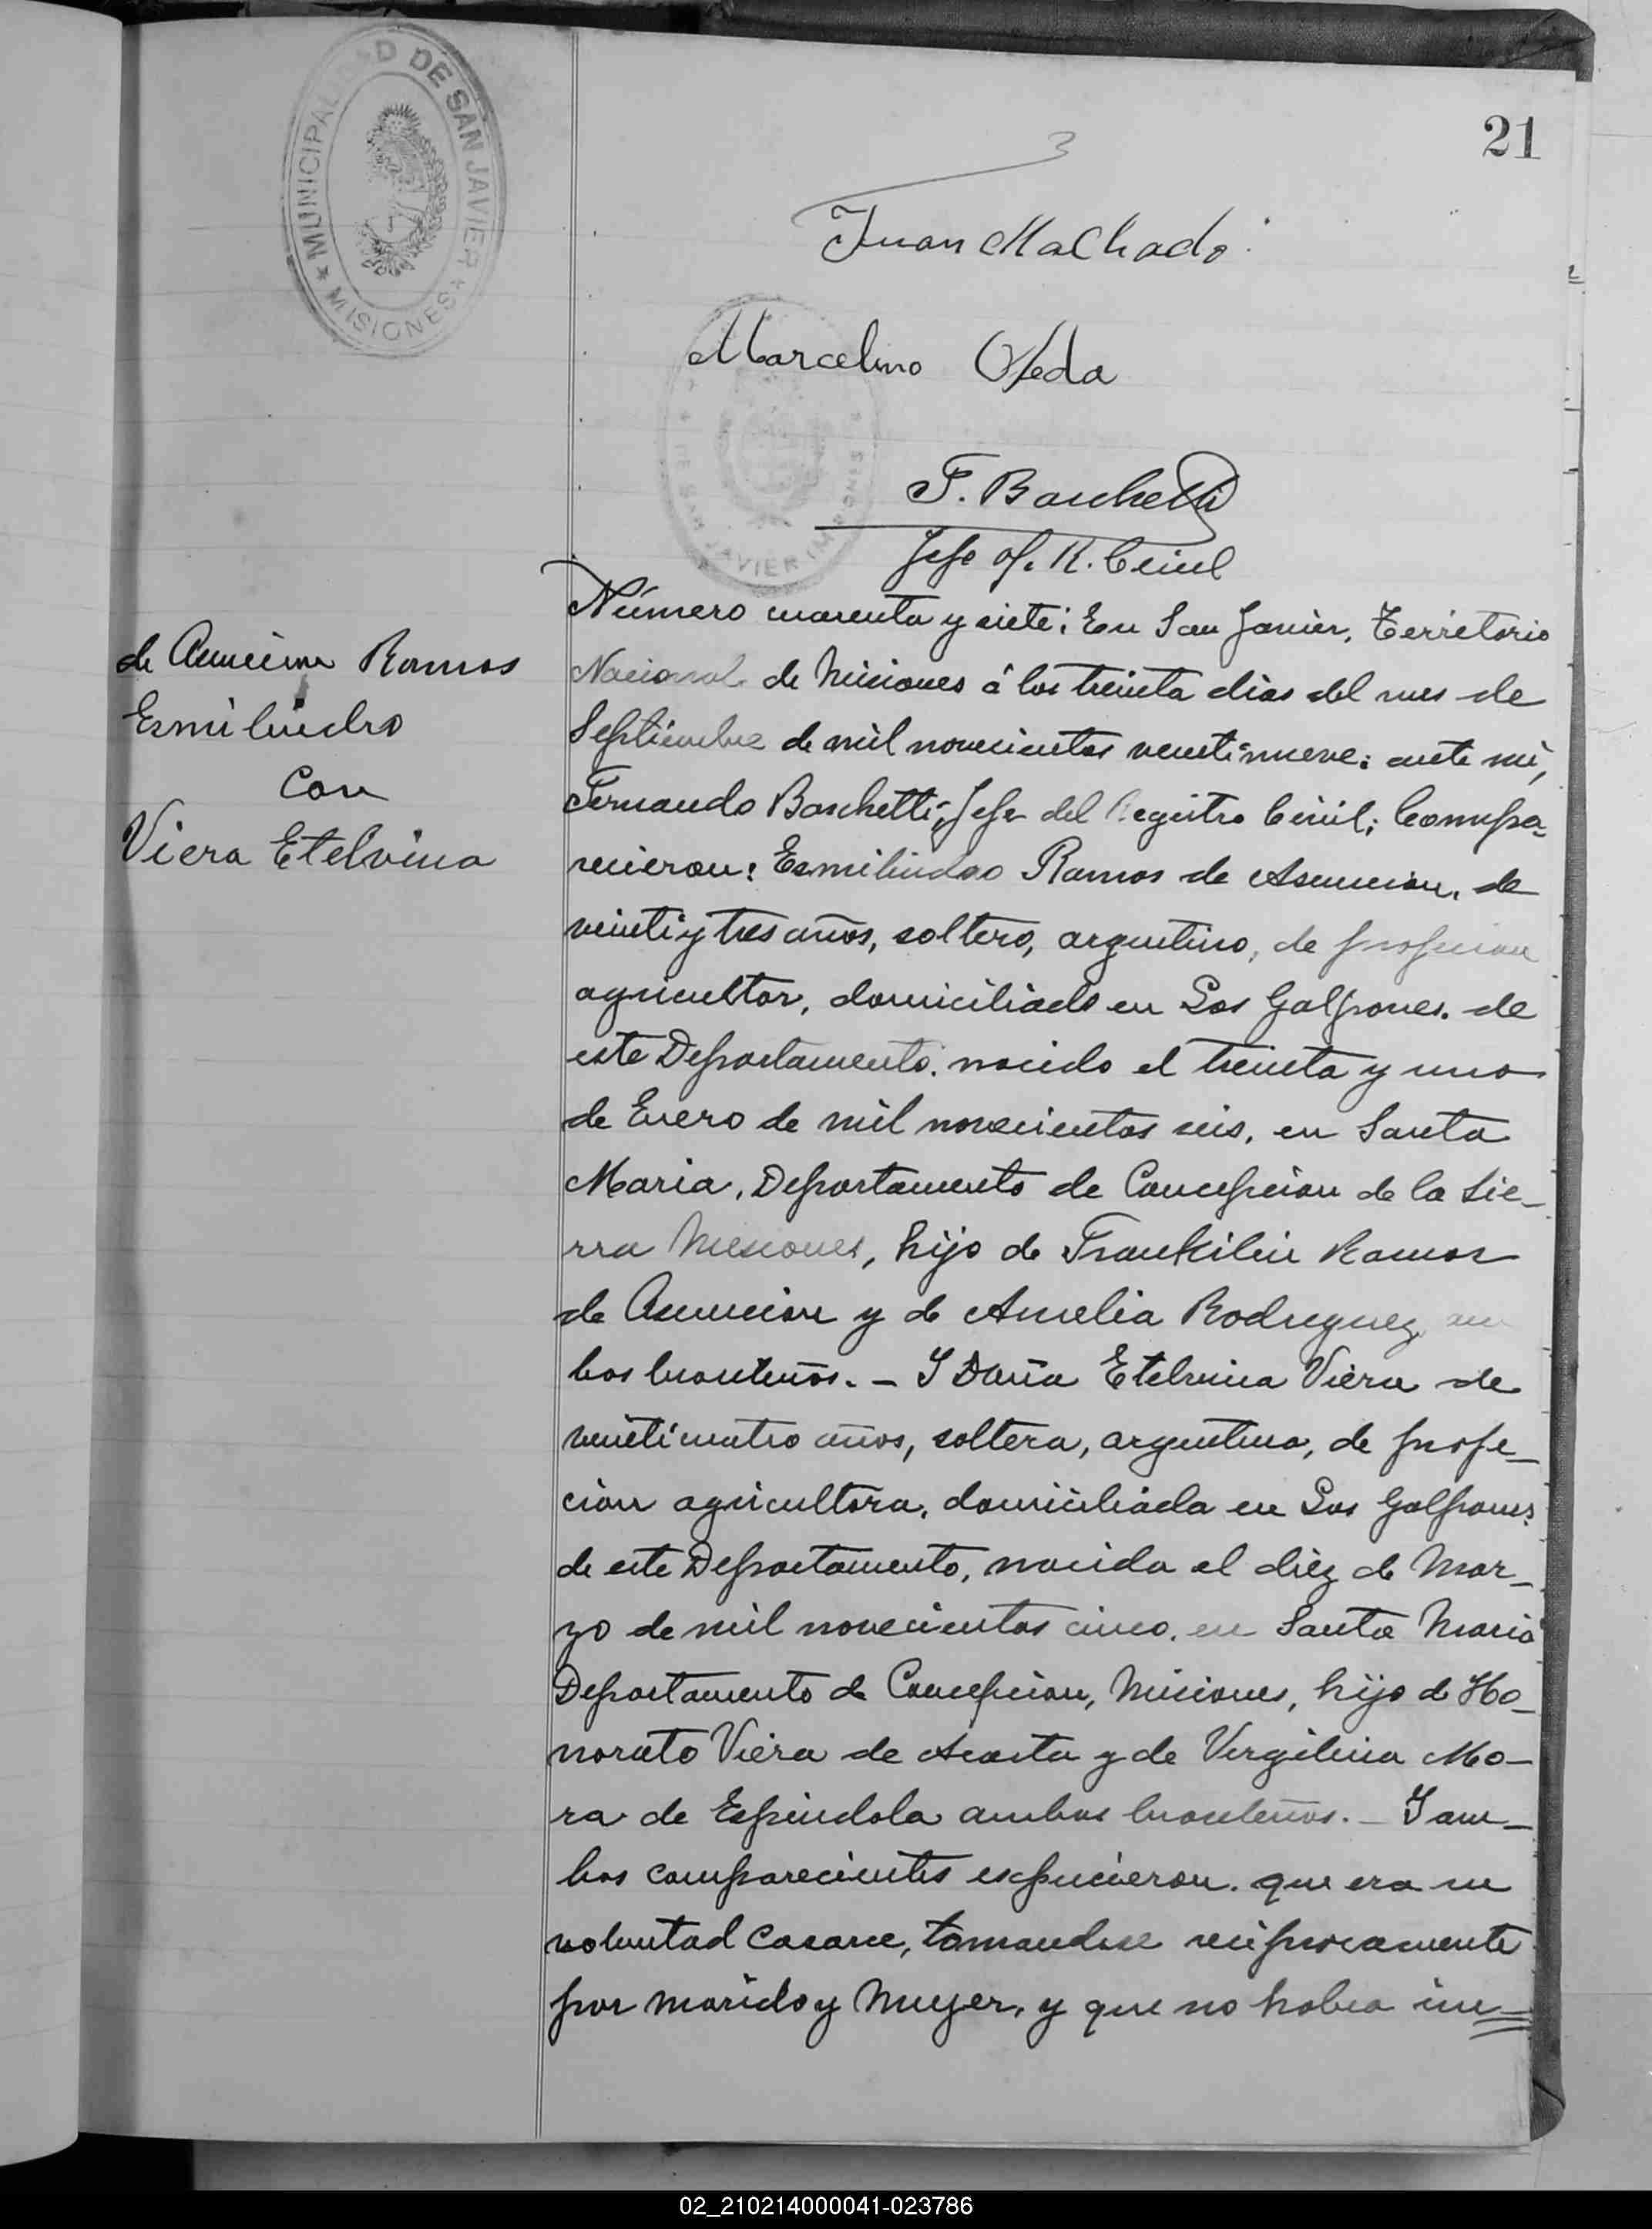 21
MUNICIPALIDAD DE SAN JAVIER
* MISIONES *
Juan Machado
Marcelino Ojeda
DE SAN JAVIER (MISIONES
F. Baschetti
Jefe of. R. Civil
de Asuncion Ramos
Esmilindro
Con
Viera Etelvina
Número cuarenta y siete: En San Javier, Territorio
Nacional de Misiones á los treinta dias del mes de
Septiembre de mil novecientos veintinueve: ante mí,
Fernando Baschetti, Jefe del Registro Civil; Compa-
recieron: Esmilindro Ramos de Asuncion, de
veinti y tres años, soltero, argentino, de profecion
agricultor, domiciliado en Los Galpones. de
este Departamento. nacido el treinta y uno
de Enero de mil novecientos seis, en Santa
Maria, Departamento de Concepcion de la Sie-
rra Misiones, hijo de Frankilin Ramos
de Asuncion y de Amelia Rodriguez am
bos brasileños. - Y Doña Etelvina Viera de
veinticuatro años, soltera, argentina, de profe-
cion agricultora, domiciliada en Los Galpones
de este Departamento, nacida el diez de Mar-
zo de mil novecientos cinco. en Santa Maria
Departamento de Concepcion, Misiones, hijo de Ho-
norato Viera de Acosta y de Vergilina Mo-
ra de Espindola ambos brasileños. - Y am-
bos comparecientes espucieron. que era su
voluntad casarce, tomandose reciprocamente
por marido y Muger, y que no habia im=
02_210214000041-023786